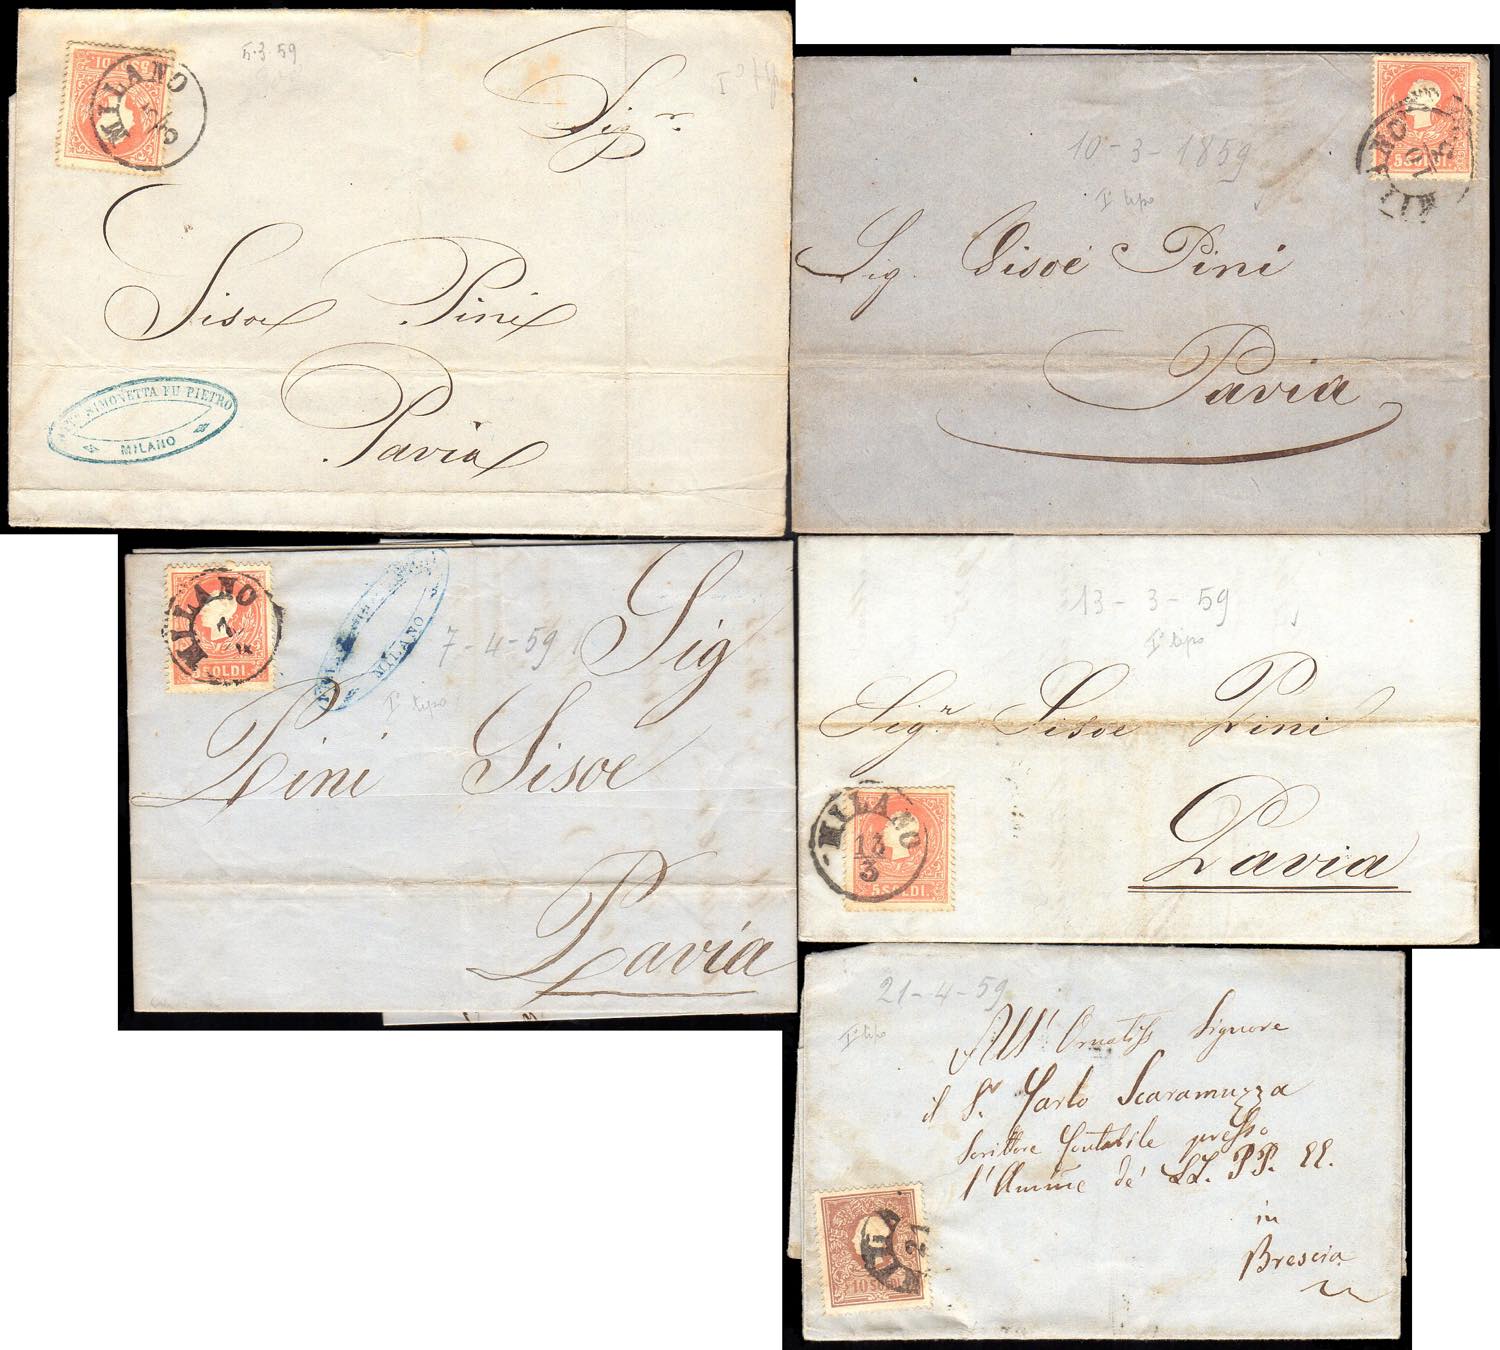 5 SOLDI
MILANO
5/3
5·3·59
Sigr.
Sisoe Pini
Pavia
SIMONETTA FU PIETRO
MILANO
MILANO
10/3
5 SOLDI.
10-3-1859
I° tipo
Sig. Sisoé Pini
Pavia
MILANO
7
5 SOLDI.
MILANO
7-4-59
I° tipo
Sig
Pini Sisoe
Pavia
13-3-59
I° tipo
Sigr. Sisoe Pini
MILANO
13
3
5 SOLDI.
Pavia
21-4-59
I° tipo
All' Ornatiss Signore
il Sr. Carlo Scaramuzza
Scrittore Contabile presso
l'Amme de' LL. PP. EE.
in
Brescia
MILA
21
10 SOLDI